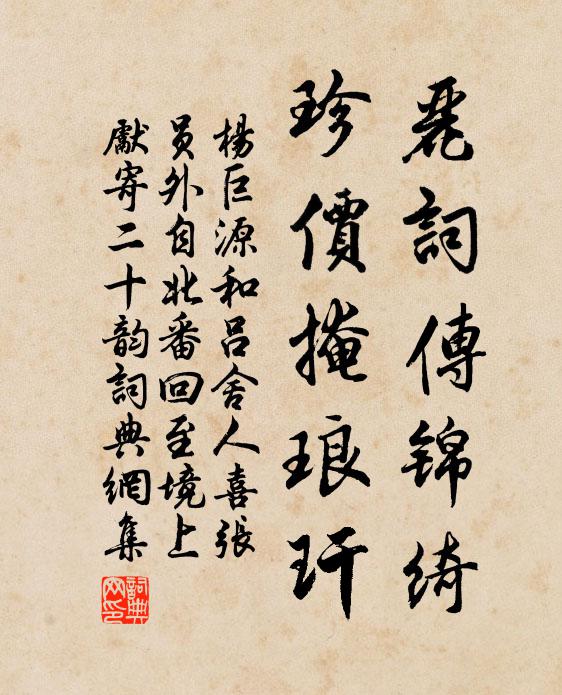 麗詞傳錦綺
珍價掩琅玕
楊巨源和呂舍人喜張
員外自北番回至境上
獻寄二十韵詞典網集
詞典
网印